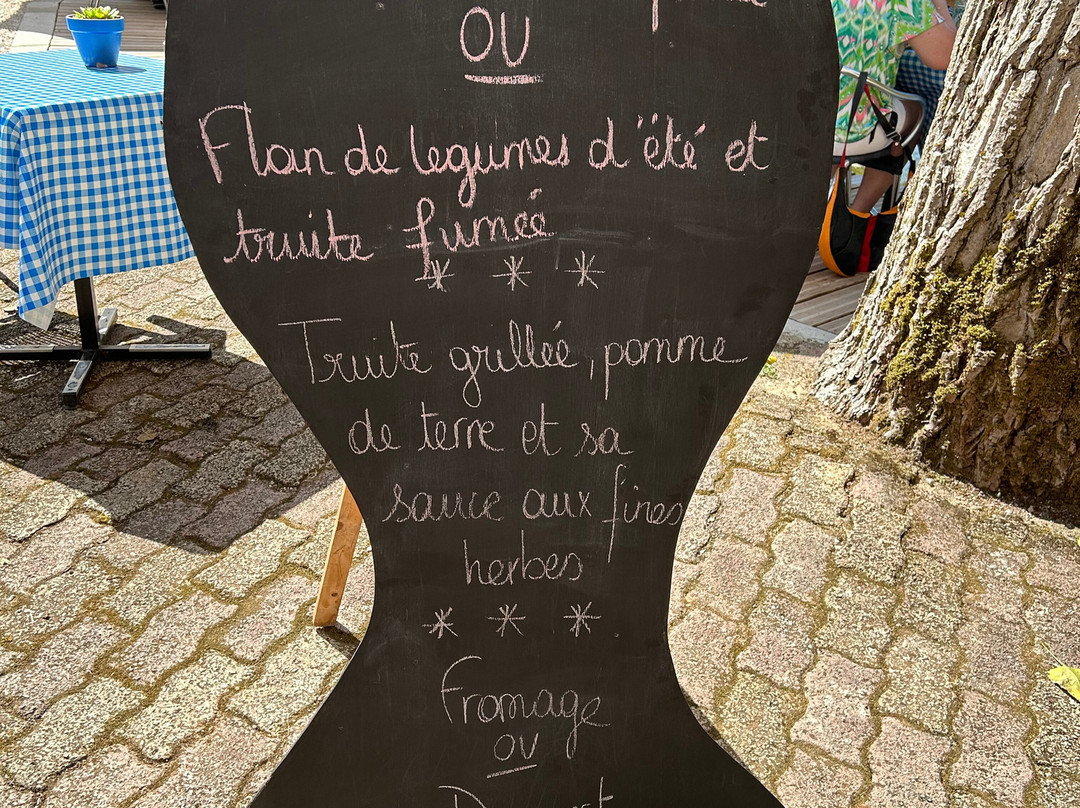 OU
Flan de legumes d'été et
truite fumée
* * *
Truite grillée, pomme
de terre et sa
sauce aux fines
herbes
* * *
Fromage
OU